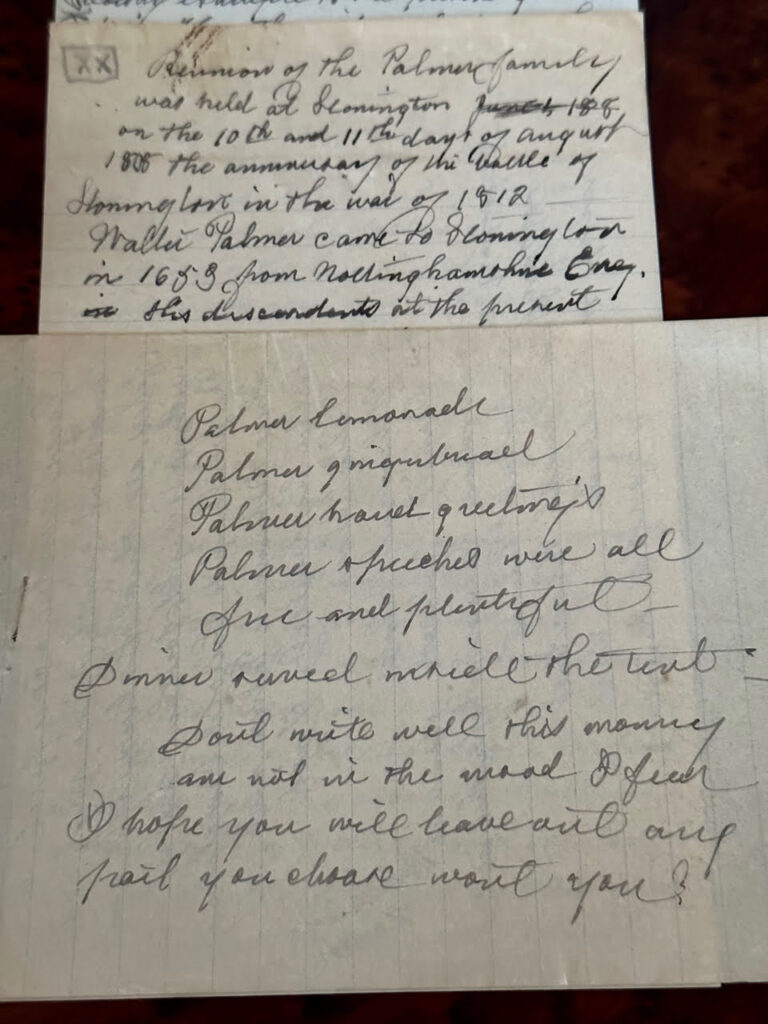 XX
Reunion of the Palmer family
was held at Stonington June 1, 188
on the 10th and 11th days of august
1888 the anniversary of the Battle of
Stonington in the war of 1812
Walter Palmer came to Stonington
in 1653 from Nottinghamshire Eng.
in His descendents at the present
Palmer lemonade
Palmer gingerbread
Palmer hand greetings
Palmer speeches were all
free and plentiful —
Dinner served inside the tent —
Dont write well this morning
am not in the mood I fear
I hope you will leave out any
part you choose wont you?